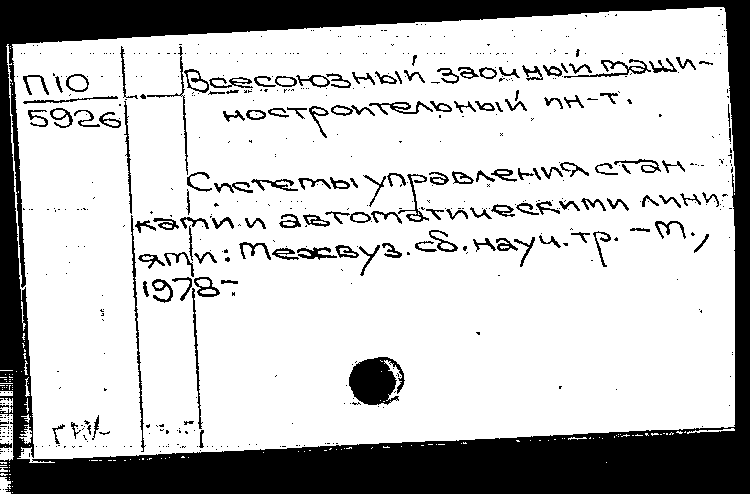 П10
5926
Всесоюзный заочный маши-
ностроительный ин-т.
Системы управления стан-
ками и автоматическими лини-
ями: Межвуз. сб. науч. тр. – М.,
1978-